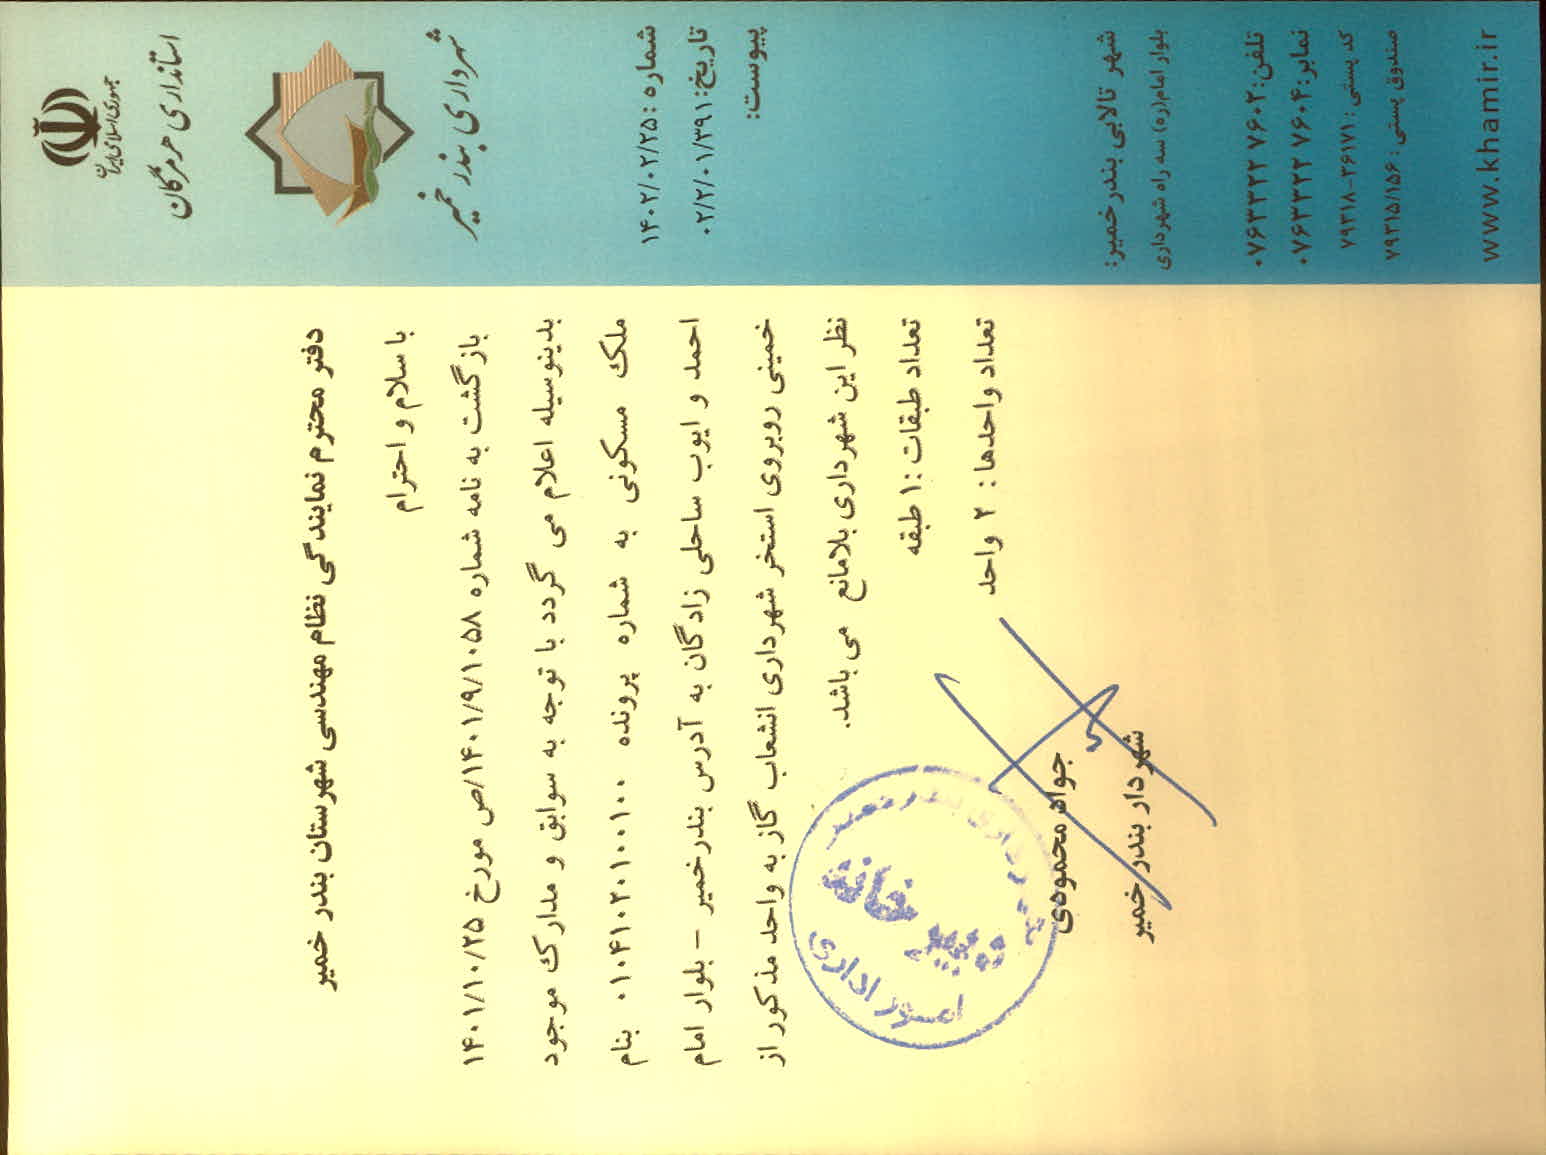 جمهوری اسلامی ایران
استانداری هرمزگان
شهرداری بندر خمیر
شماره : ۱۴۰۲/۰۲/۲۵
تاریخ: ۰۲/۲/۰۱/۳۹۱
پیوست:
شهر تالابی بندرخمیر:
بلوار امام(ره) سه راه شهرداری
تلفن: ۰۷۶۳۳۲۲ ۷۶۰۲
نمابر: ۰۷۶۳۳۲۳ ۷۶۰۴
کد پستی : ۷۹۳۱۸-۳۶۱۷۱
صندوق پستی : ۷۹۳۱۵/۱۵۶
www.khamir.ir
دفتر محترم نمایندگی نظام مهندسی شهرستان بندر خمیر
با سلام و احترام
بازگشت به نامه شماره ۱۴۰۱/۹/۱۰۵۸/ص مورخ ۱۴۰۱/۱۰/۲۵
بدینوسیله اعلام می گردد با توجه به سوابق و مدارک موجود
ملک مسکونی به شماره پرونده ۰۱۰۴۱۰۲۰۱۰۰۱۰۰ بنام
احمد و ایوب ساحلی زادگان به آدرس بندرخمیر – بلوار امام
خمینی روبروی استخر شهرداری انشعاب گاز به واحد مذکور از
نظر این شهرداری بلامانع می باشد.
تعداد طبقات : ۱ طبقه
تعداد واحدها : ۲ واحد
جواد محمودی
شهردار بندر خمیر
شهرداری بندر خمیر
دبیرخانه
امور اداری